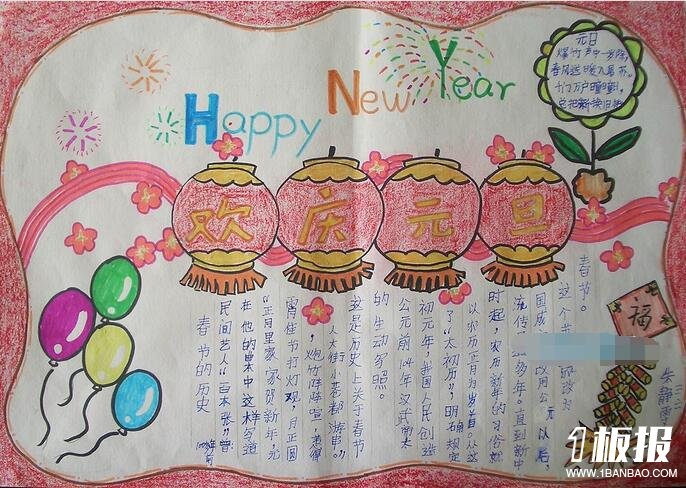 Happy New Year
元日
爆竹声中一岁除,
春风送暖入屠苏。
千门万户曈曈日,
总把新
欢庆元旦
福
春节。
这个节
国成
流传
多年。直到新中
时起,农历新年的习俗就
以农历正月为岁首。从这
了“太初历”,明确规定
初元年,我国人民创造
公元前104年汉武
的生动写照。
这是历史上关于春节
人大街小巷都
,炮竹阵阵喧,惹得
宵佳节打灯观,月正圆
“正月里家家贺新年,元
在他的
中这样写道
民间艺人“百本张”曾
春节的历史
1板报
WWW.1BANBAO.COM